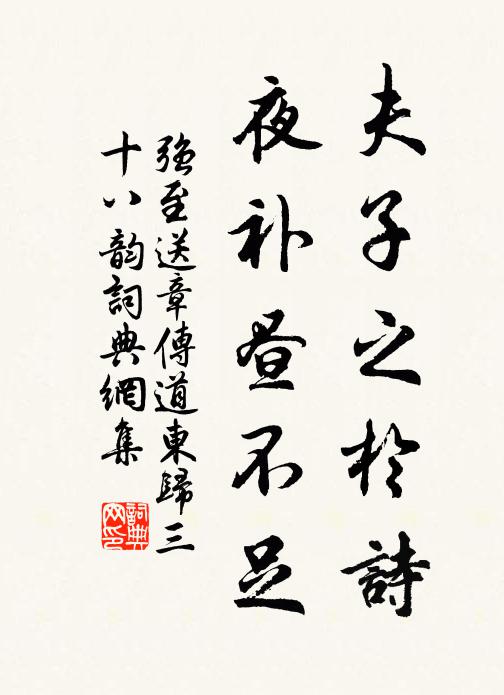 夫子之於詩
夜补昼不足
强至送章傳道東歸三
十八韵詞典網集
詞典网印